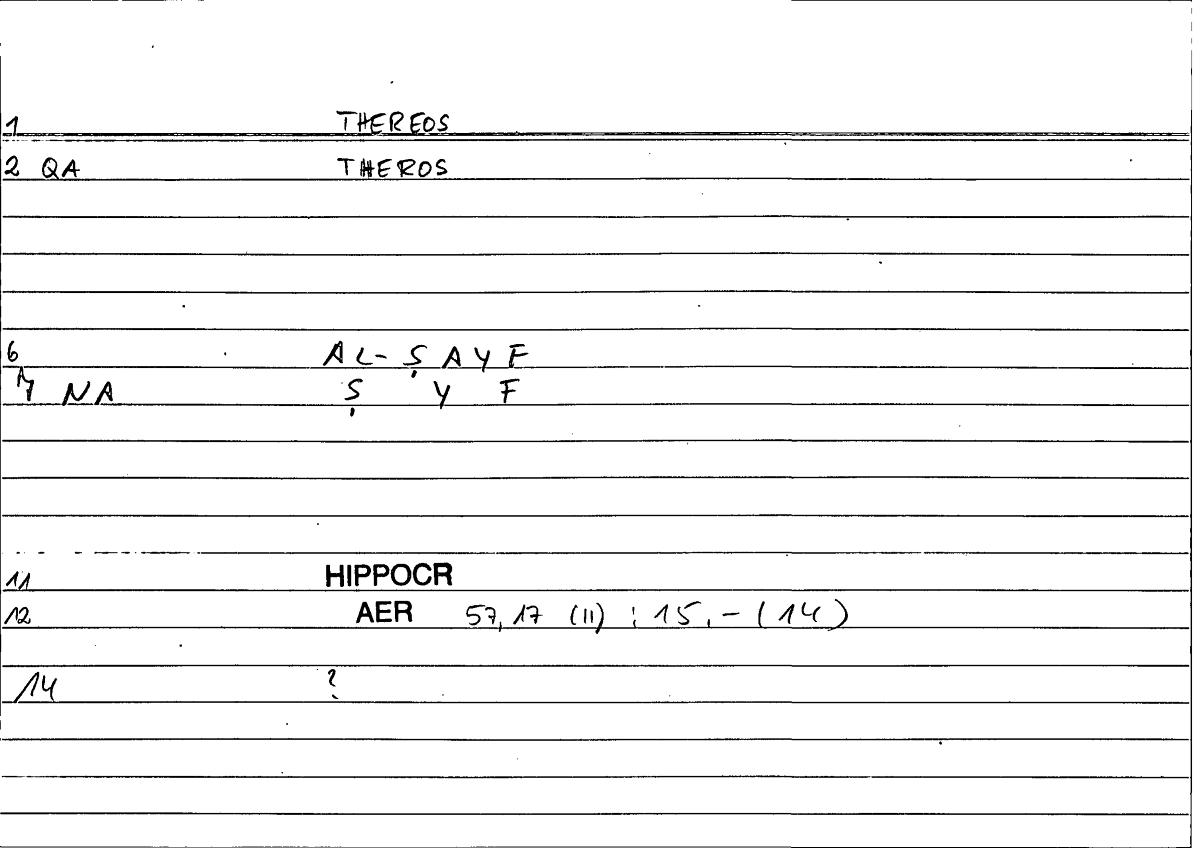 1 THEREOS
2 QA THEROS
6 AL-ṢAYF
7 NA Ṣ Y F
11 HIPPOCR
12 AER 57,17 (11) : 15.-(14)
14 ?